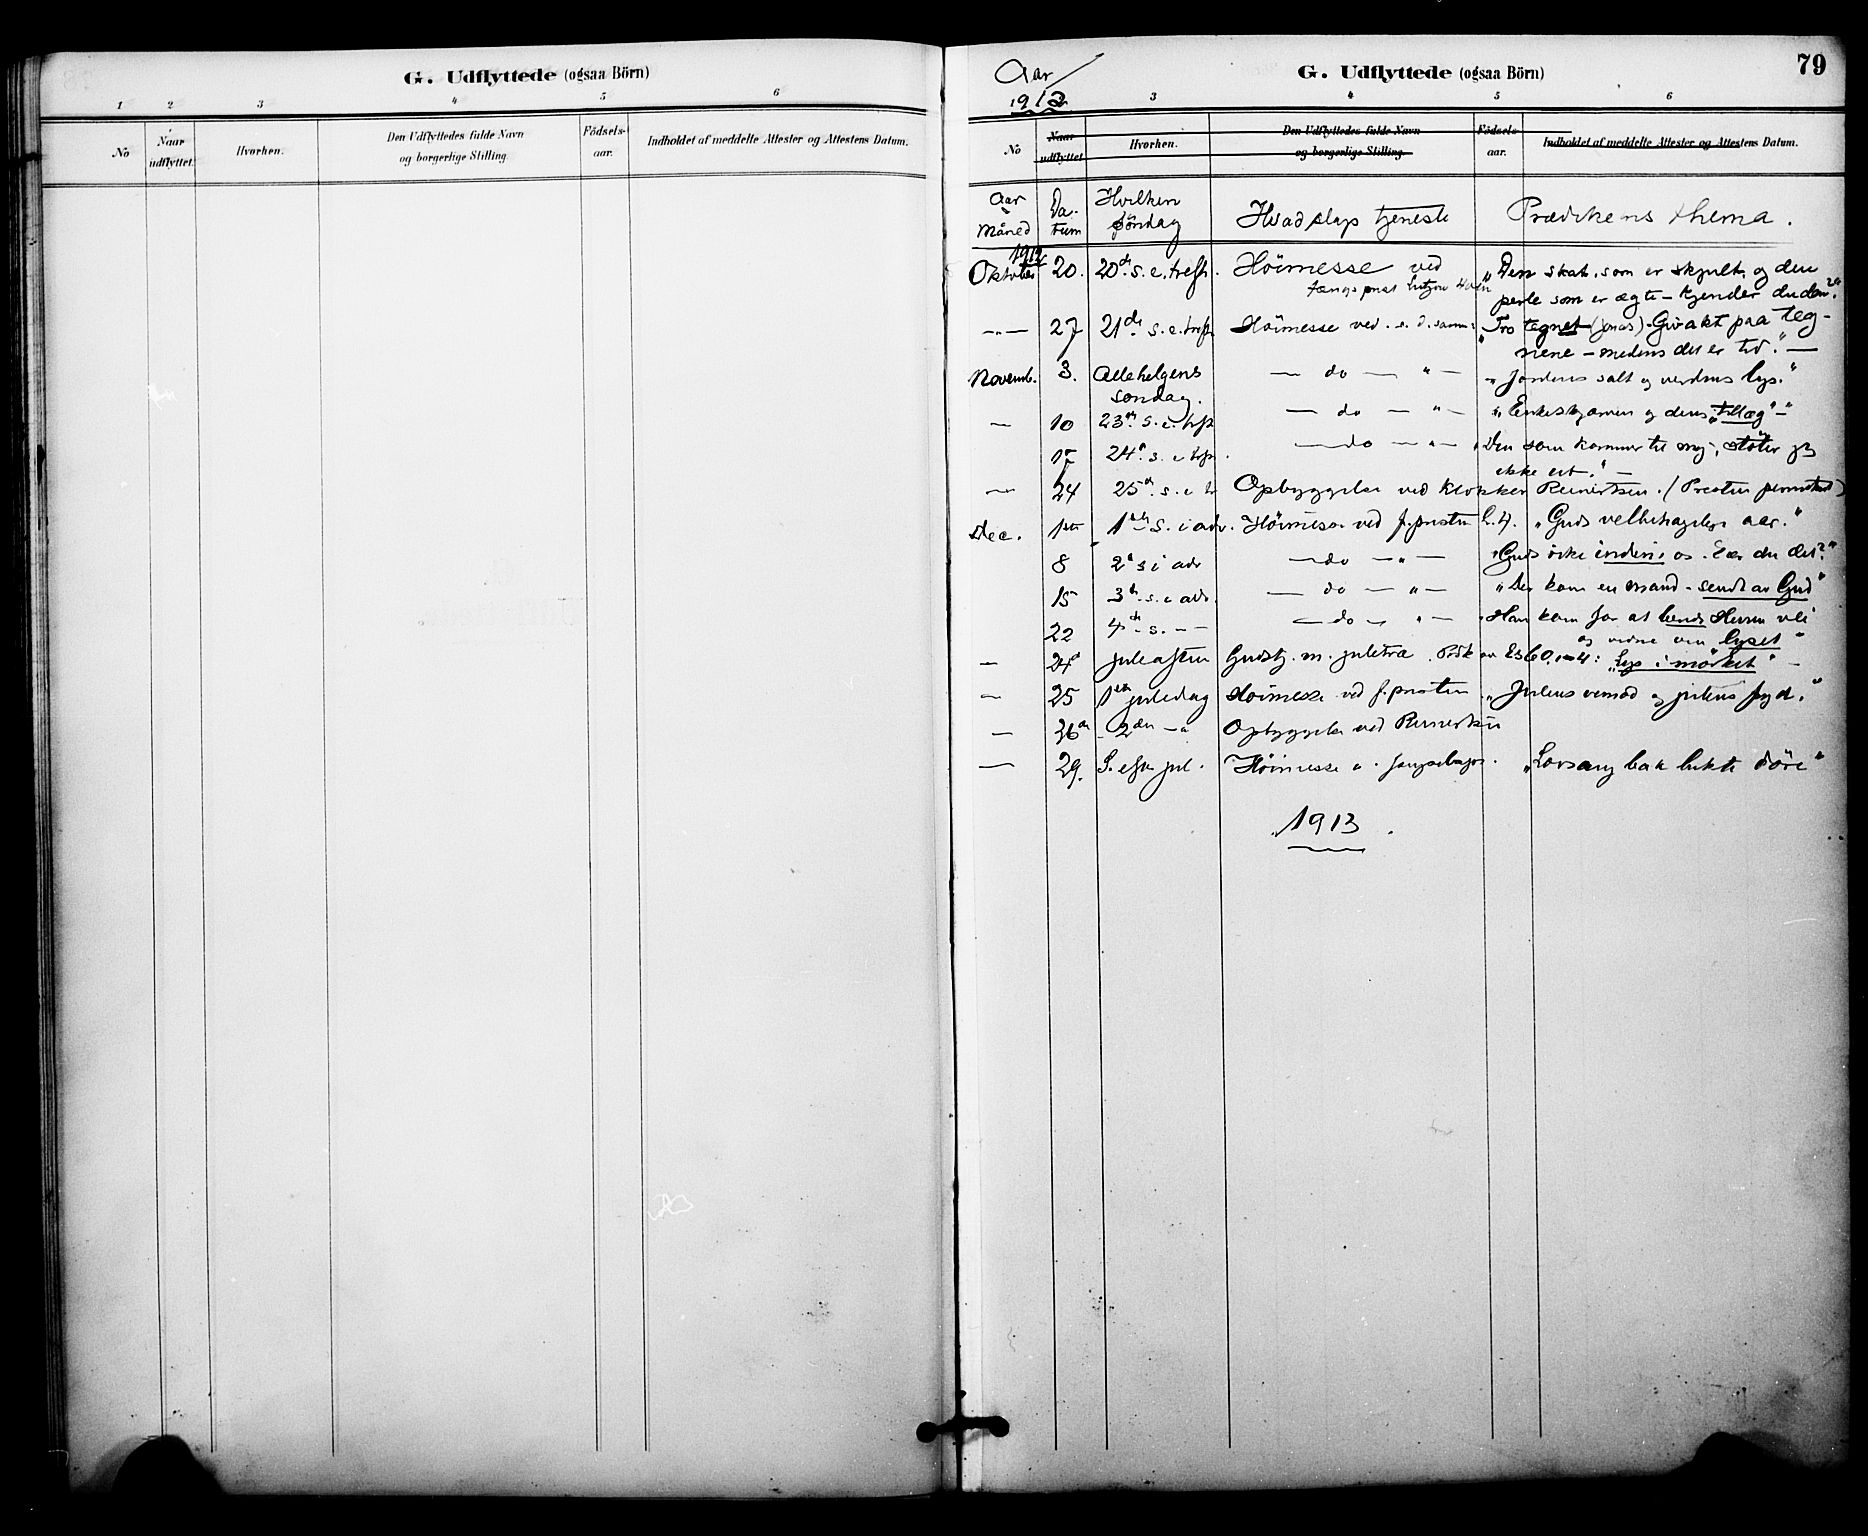 G. Udflyttede (ogsaa Börn)
1 2 3 4 5 6
No Naar udflyttet. Hvorhen. Den Udflyttedes fulde Navn og borgerlige Stilling. Födsels-aar. Indholdet af meddelte Attester og Attestens Datum.
Aar
1912
G. Udflyttede (ogsaa Börn)
79
3 4 5 6
No Naar udflyttet Hvorhen. Den Udflyttedes fulde Navn og borgerlige Stilling. Födsels-aar. Indholdet af meddelte Attester og Attestens Datum.
Aar Måned Da-tum Hvilken söndag Hvad slags tjeneste Prædikens thema.
1912
Oktober 20. 20de s. e. trefh. Höimesse ved „Den skat, som er skjult, og den
perle som er ægte – kjender du den?"
—„— 27 21de s. e. trefh Höimesse ved s. d. samme „Tro tegnet (Jonas). Giv akt paa teg-
nene – medens det er tid." —
Novemb. 3. Allehelgens söndag. — do — " — „Jordens salt og verdens lys."
— 10 23de s. e. trfh — do — " — „Enkeskjærven og dens „tillæg" – "
17 24d. s. e. trfh. — do — " — „Den som kommer til mig, stöter jeg
ikke ut." —
— 24 25d. s. e. tr Opbyggelse ved klokker Reinertsen. (Presten permittert)
Dec. 1ste 1ste s. i adv. Höimesse ved f.presten L.H. „Guds velbehagelige aar."
8 2d s i adv — do — " — „Guds rike inden i os. Eier du det?"
15 3de s. i adv. — do — " — „Der kom en mand – sendt av Gud"
22 4de s. — — — do — " — „Han kom for at Herren vei
og vidne om lyset"
— 24d juleaften Gudstj. m. juletræ. Præk av Es 60, 1-4: „Lys i mörket" –
— 25 1ste juledag Höimesse ved f.presten „Julens vemod og julens fryd."
— 26de 2den — " Opbyggelse ved Reinertsen
— 29. S. efter jul. Höimesse v. fængselspr. „Lovsang bak lukte döre"
1913